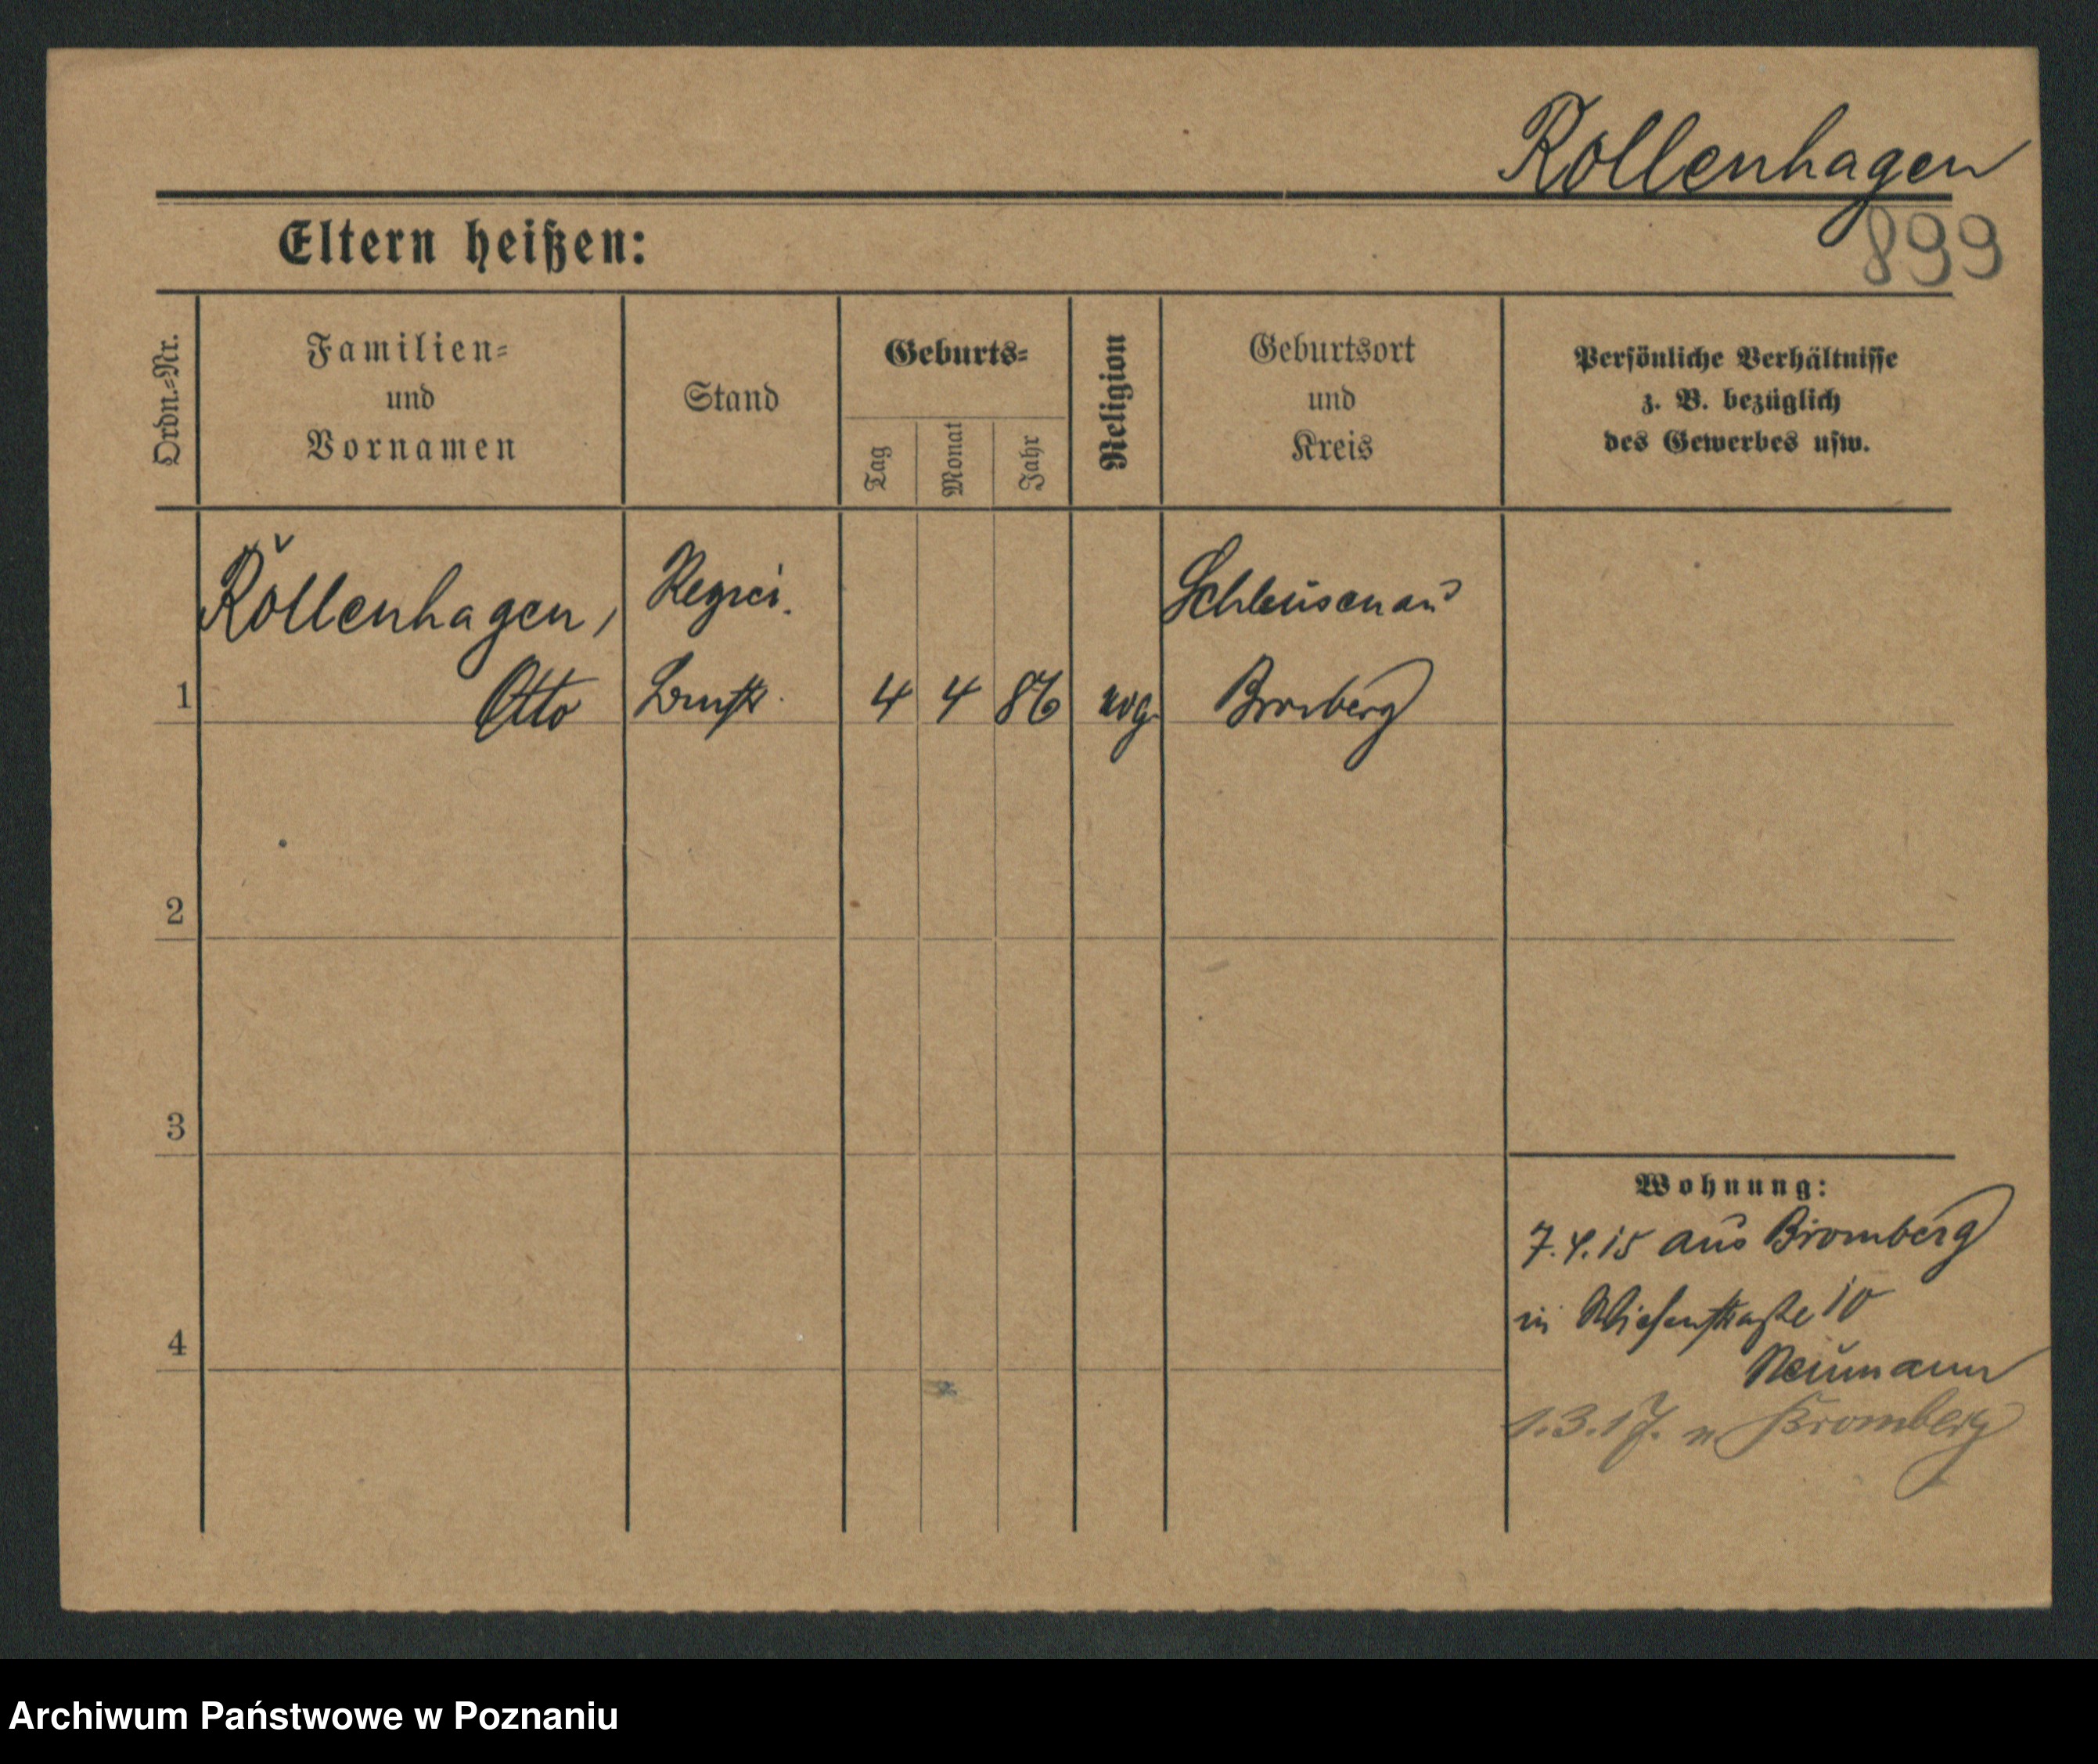 Rollenhagen
899
Eltern heißen:
Ordn.-Nr.
Familien-
und
Vornamen
Stand
Geburts-
Tag
Monat
Jahr
Religion
Geburtsort
und
Kreis
Persönliche Verhältnisse
z. B. bezüglich
des Gewerbes usw.
1
Rollenhagen,
Otto
4 4 86
Schleusenau
Bromberg
2
3
4
Wohnung:
7.4.15 aus Bromberg
in Wiesenstraße 10
Neumann
1.3.17. n Bromberg
Archiwum Państwowe w Poznaniu